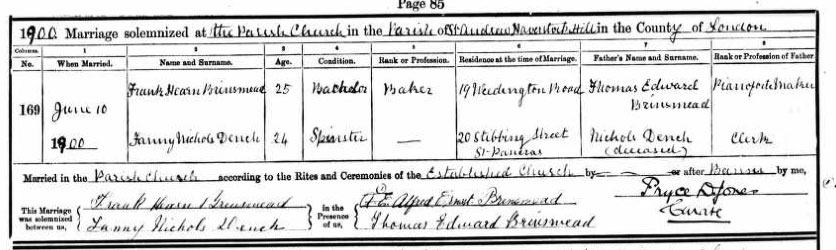 Page 85
1900. Marriage solemnized at the Parish Church in the Parish of St Andrew Haverstock Hill in the County of London
Columns. 1 2 3 4 5 6 7 8
No. When Married. Name and Surname. Age. Condition. Rank or Profession. Residence at the time of Marriage. Father's Name and Surname. Rank or Profession of Father.
169 June 10 1900 Frank Hearn Brinsmead 25 Bachelor Baker 19 Weedington Road Thomas Edward Brinsmead Pianoforte Maker
Fanny Nichols Dench 24 Spinster — 20 Stibbing Street St Pancras Nichols Dench (deceased) Clerk
Married in the Parish Church according to the Rites and Ceremonies of the Established Church by — or after Banns by me,
This Marriage was solemnized between us, Frank Hearn Brinsmead in the Presence of us, Alfred Ernest Brinsmead Pryce D Jones
Fanny Nichols Dench Thomas Edward Brinsmead Curate